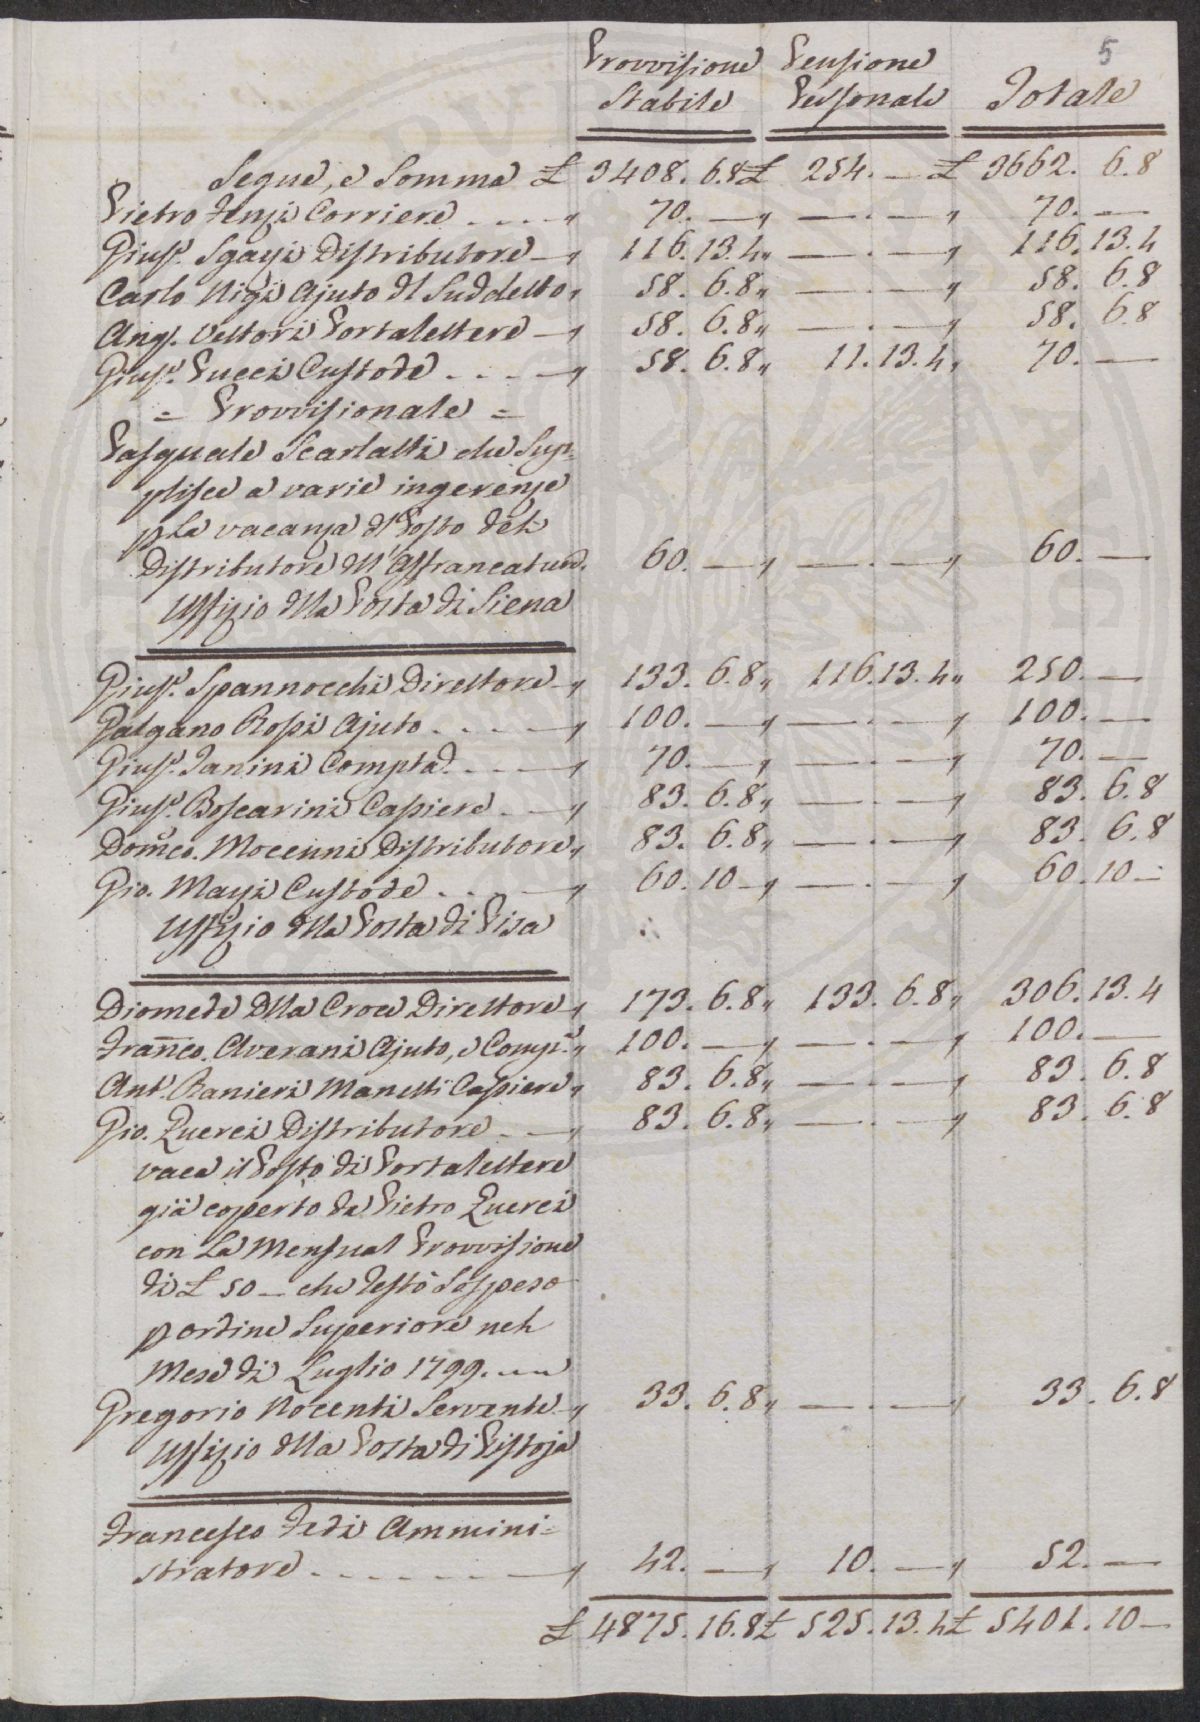 5
Provvisione Pensione
Stabile Personale Totale
Segue, e Somma £ 3408. 6.8 £ 254. — £ 3662. 6.8
Pietro Fenzi Corriere . . . . „ 70. — „ — . — „ 70. —
Gius.e Sgazzi Distributore — „ 116.13.4 „ — . — „ 116.13.4
Carlo Nigi Ajuto dl Suddetto „ 58. 6.8 „ — . — „ 58. 6.8
Ang. Vettori Portalettere — „ 58. 6.8 „ — . — „ 58. 6.8
Gius.e Pucci Custode . . . . „ 58. 6.8 „ 11.13.4 „ 70. —
= Provvisionale =
Pasquale Scarlatti che Sup=
plisce a varie ingerenze
p la vacanza dl Posto del
Distributore dll'Affrancature. 60. — „ — . — „ 60. —
Uffizio dlla Posta di Siena
Gius.e Spannocchi Direttore „ 133. 6.8 „ 116.13.4 „ 250. —
Galgano Rossi Ajuto . . . . „ 100. — „ — . — „ 100. —
Gius.e Janini Comptad. . . . „ 70. — „ — . — „ 70. —
Gius.e Boscarini Cassiere . . „ 83. 6.8 „ — . — „ 83. 6.8
Domco. Mocenni Distributore „ 83. 6.8 „ — . — „ 83. 6.8
Gio. Mazzi Custode . . . . „ 60.10 — „ — . — „ 60.10 —
Uffizio dlla Posta di Pisa
Diomede dlla Croce Direttore „ 173. 6.8 „ 133. 6.8 „ 306.13.4
Franco. Averani Ajuto, e Comp.a „ 100. — „ — . — „ 100. —
Ant. Ranieri Manetti Cassiere „ 83. 6.8 „ — . — „ 83. 6.8
Gio. Querci Distributore — „ 83. 6.8 „ — . — „ 83. 6.8
vaca il Posto di Portalettere
già coperto da Pietro Querci
con la Mensual Provvisione
di £ 50 — che restò Sospeso
p ordine Superiore nel
Mese di Luglio 1799.
Gregorio Nocenti Servente „ 33. 6.8 „ — . — „ 33. 6.8
Uffizio dlla Posta di Pistoja
Francesco Fedi Ammini=
stratore . . . . . . . „ 42. — „ 10. — „ 52. —
£ 4875.16.8 £ 525.13.4 £ 5401.10 —